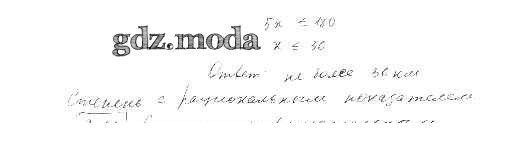 5x ≤ 180
gdz.moda
x ≤ 36
Ответ: не более 36 км
Степень с рациональным показателем